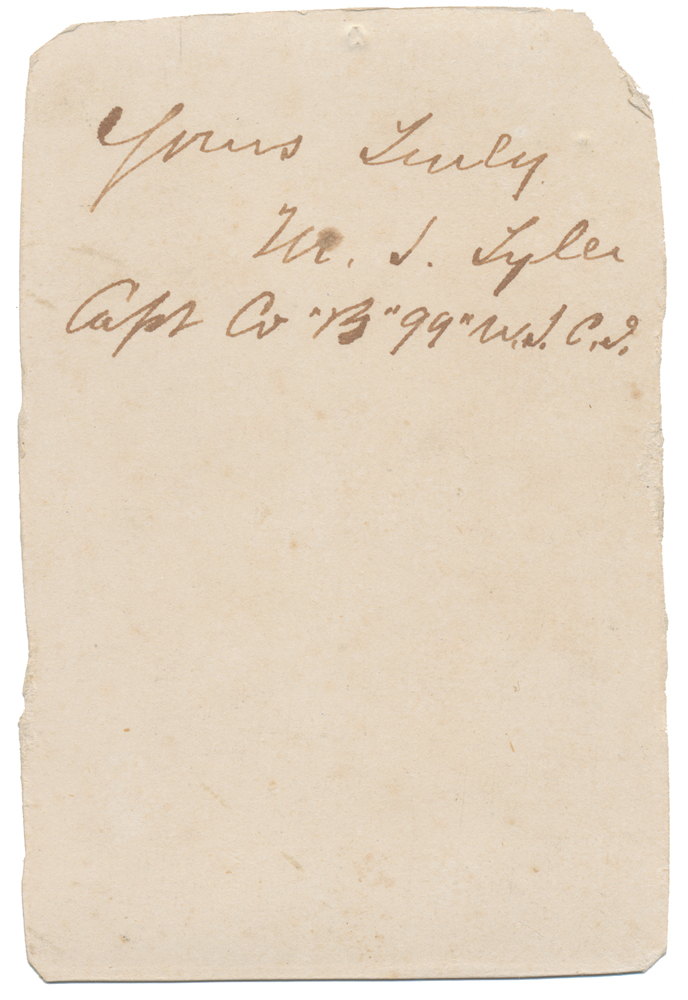 Yours Truly
M. J. Tyler
Capt Co "B" 99" U.S. C.I.